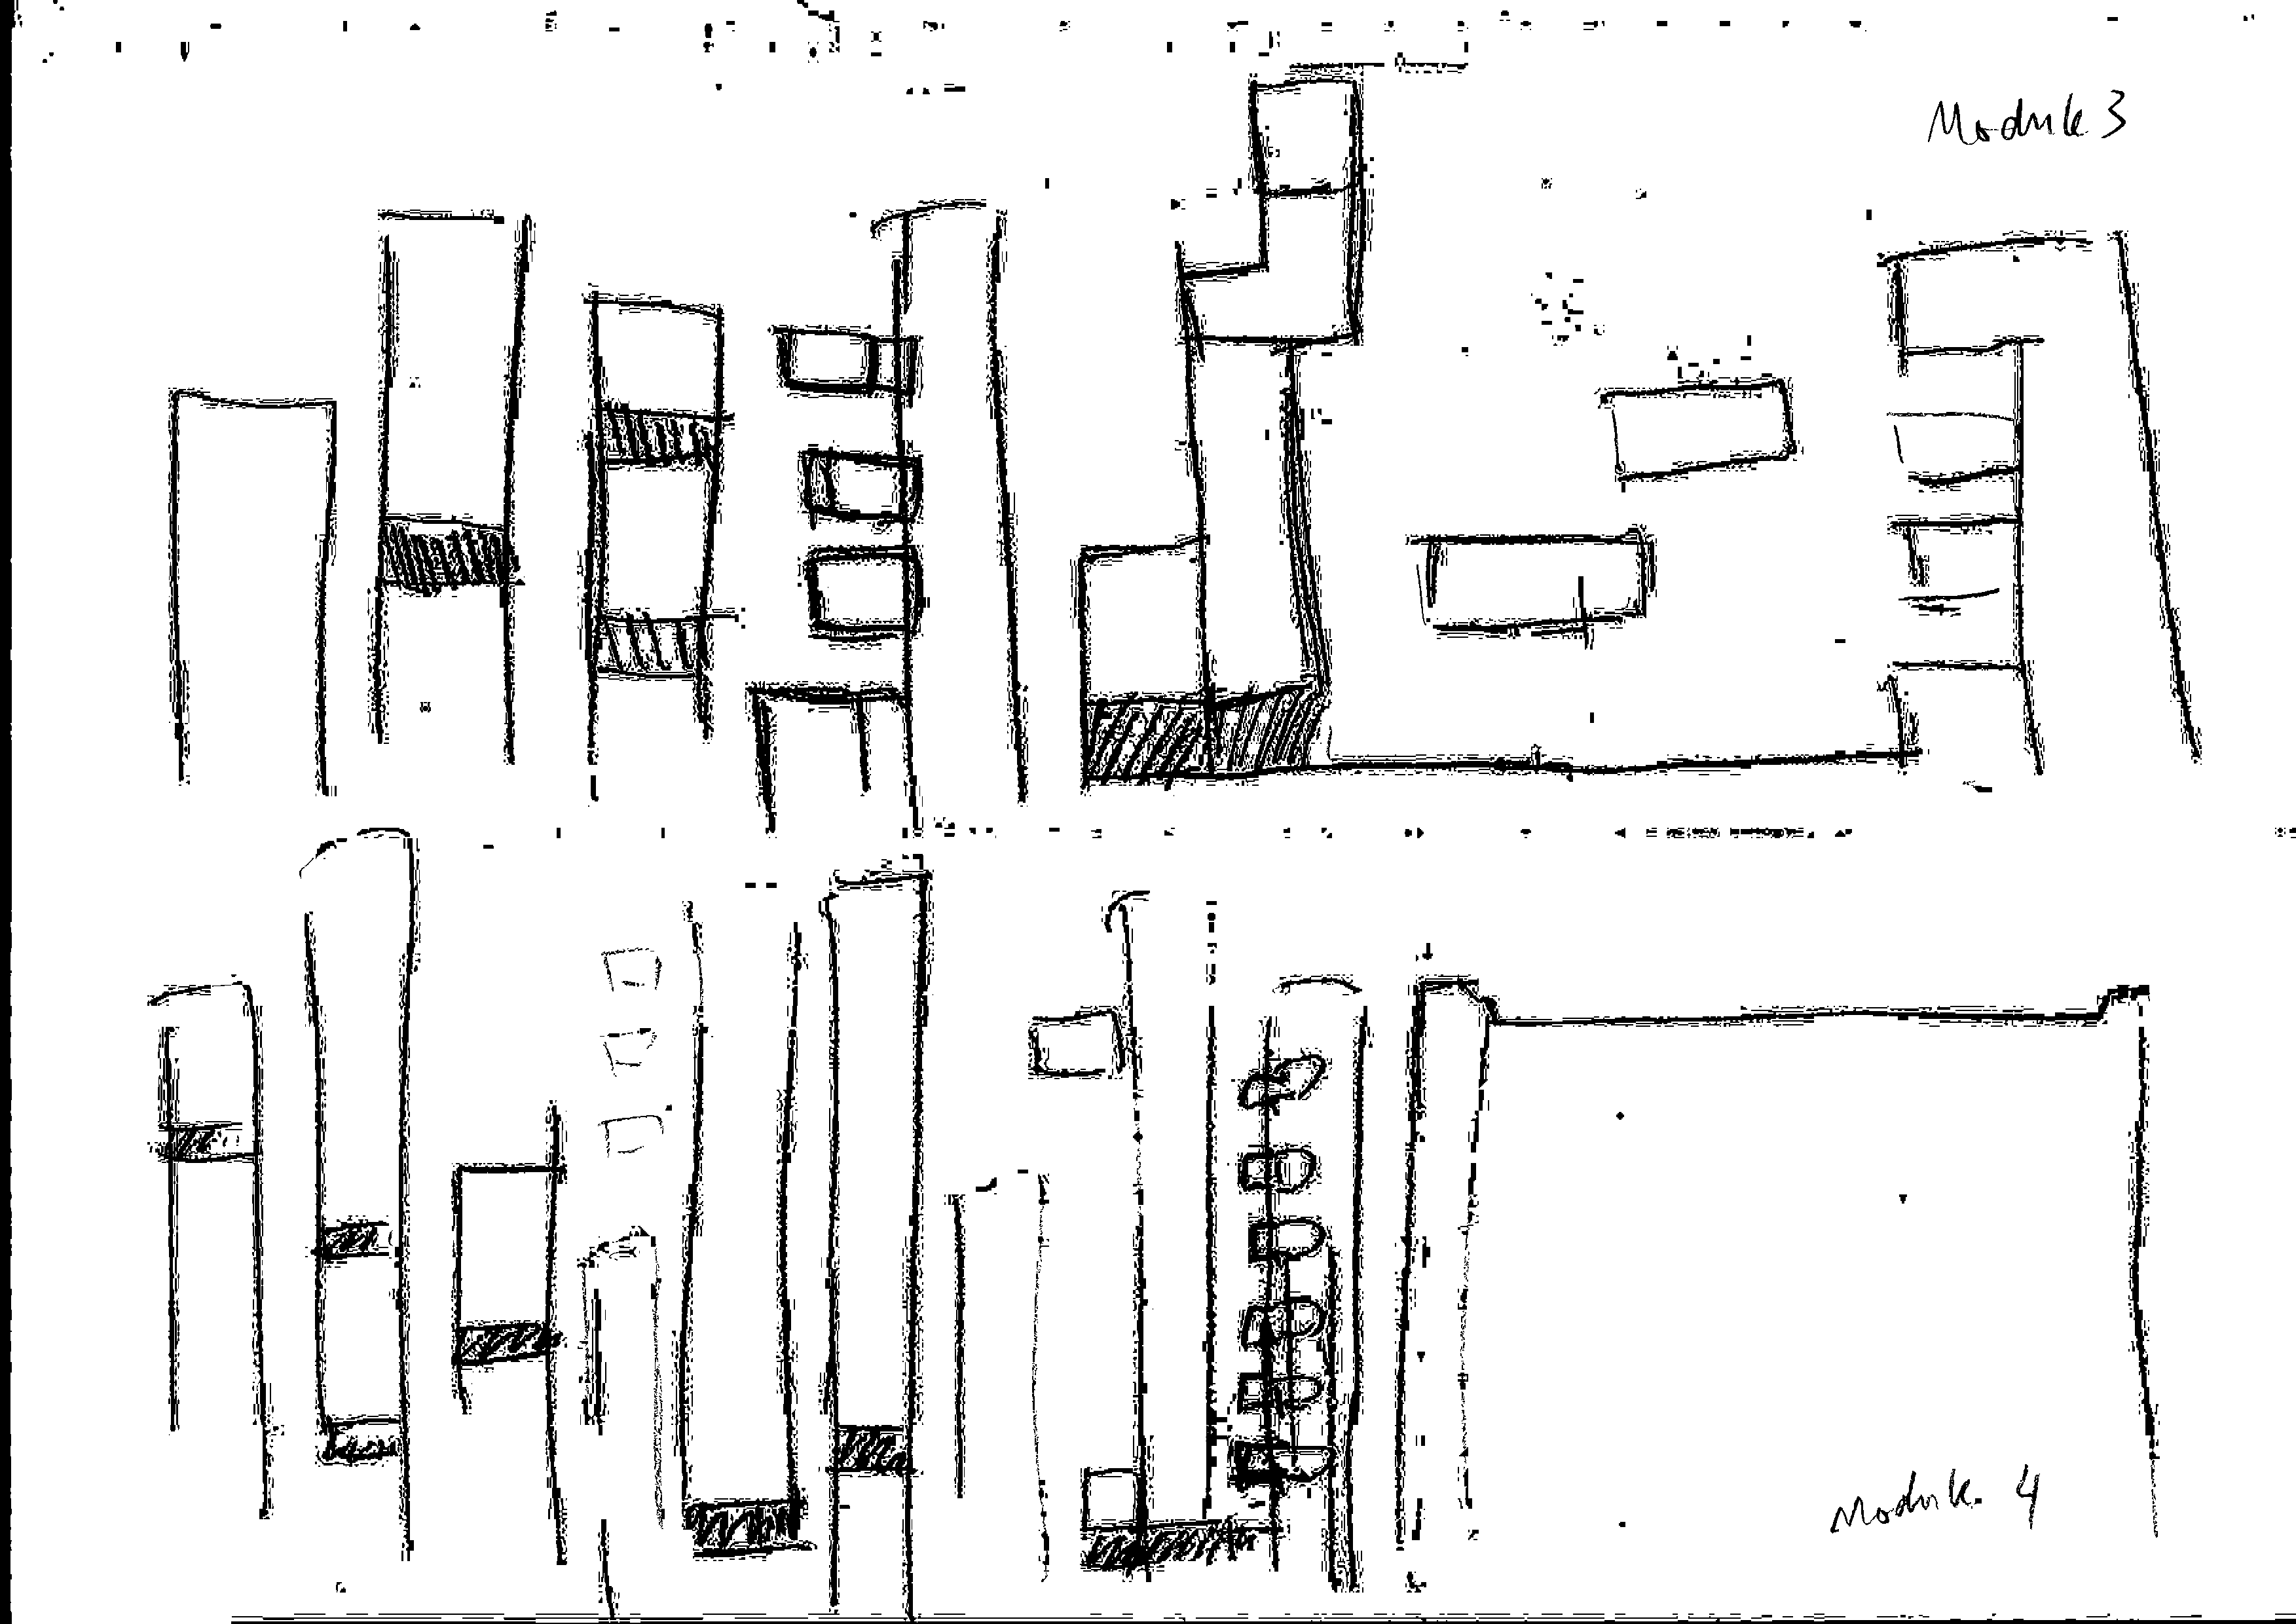 Module 3
Module 4